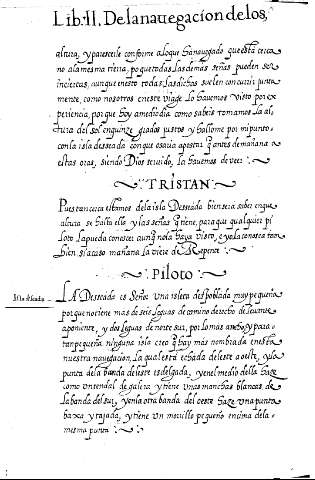 Lib. II, De la nauegacion de los,
altura, y parescerle conforme a lo que ha nauegado que está cerca
no a la mesma tierra, porque todas las demás señas pueden ser
inciertas, aunque nesto todas las dichas suelen concurrir junta
mente, como nosotros en este viage lo hauemos visto por ex
periencia, porque hoy a mediodia como sabeis tomamos la al
tura del sol en quinze grados justos y hallome por mi punto
con la isla desseada con que osaria apostar que antes de mañana a
estas oras, siendo Dios seruido, la hauemos de ver :~
~ TRISTAN ~
Pues tan cerca estamos de la isla Desseada bien sera saber en que
altura se halla ella y las señas que tiene, para que qualquier pi
loto la pueda conoscer aunque no la haya visto, e yo la conosca tam
bien si acaso mañana la viere de Repente :~
~ Piloto :~
Isla desseada
LA Desseada es Señor una isleta despoblada muy pequeña
porque no tiene mas de seis leguas de camino derecho de leuante
a poniente, y dos leguas de norte sur, por lo más ancho, y para
tan pequeña ninguna isla creo que hay mas nombrada en esta
nuestra nauegacion. La qual está echada de leste a oeste, y la
punta de la banda del este es delgada, y en el medio della haze
como un tendal de galera y tiene unas manchas blancas de
la banda del sur, y en la otra banda del oeste haze una punta
baxa y tajada, y tiene un morrillo pequeño encima de la
mesma punta :~